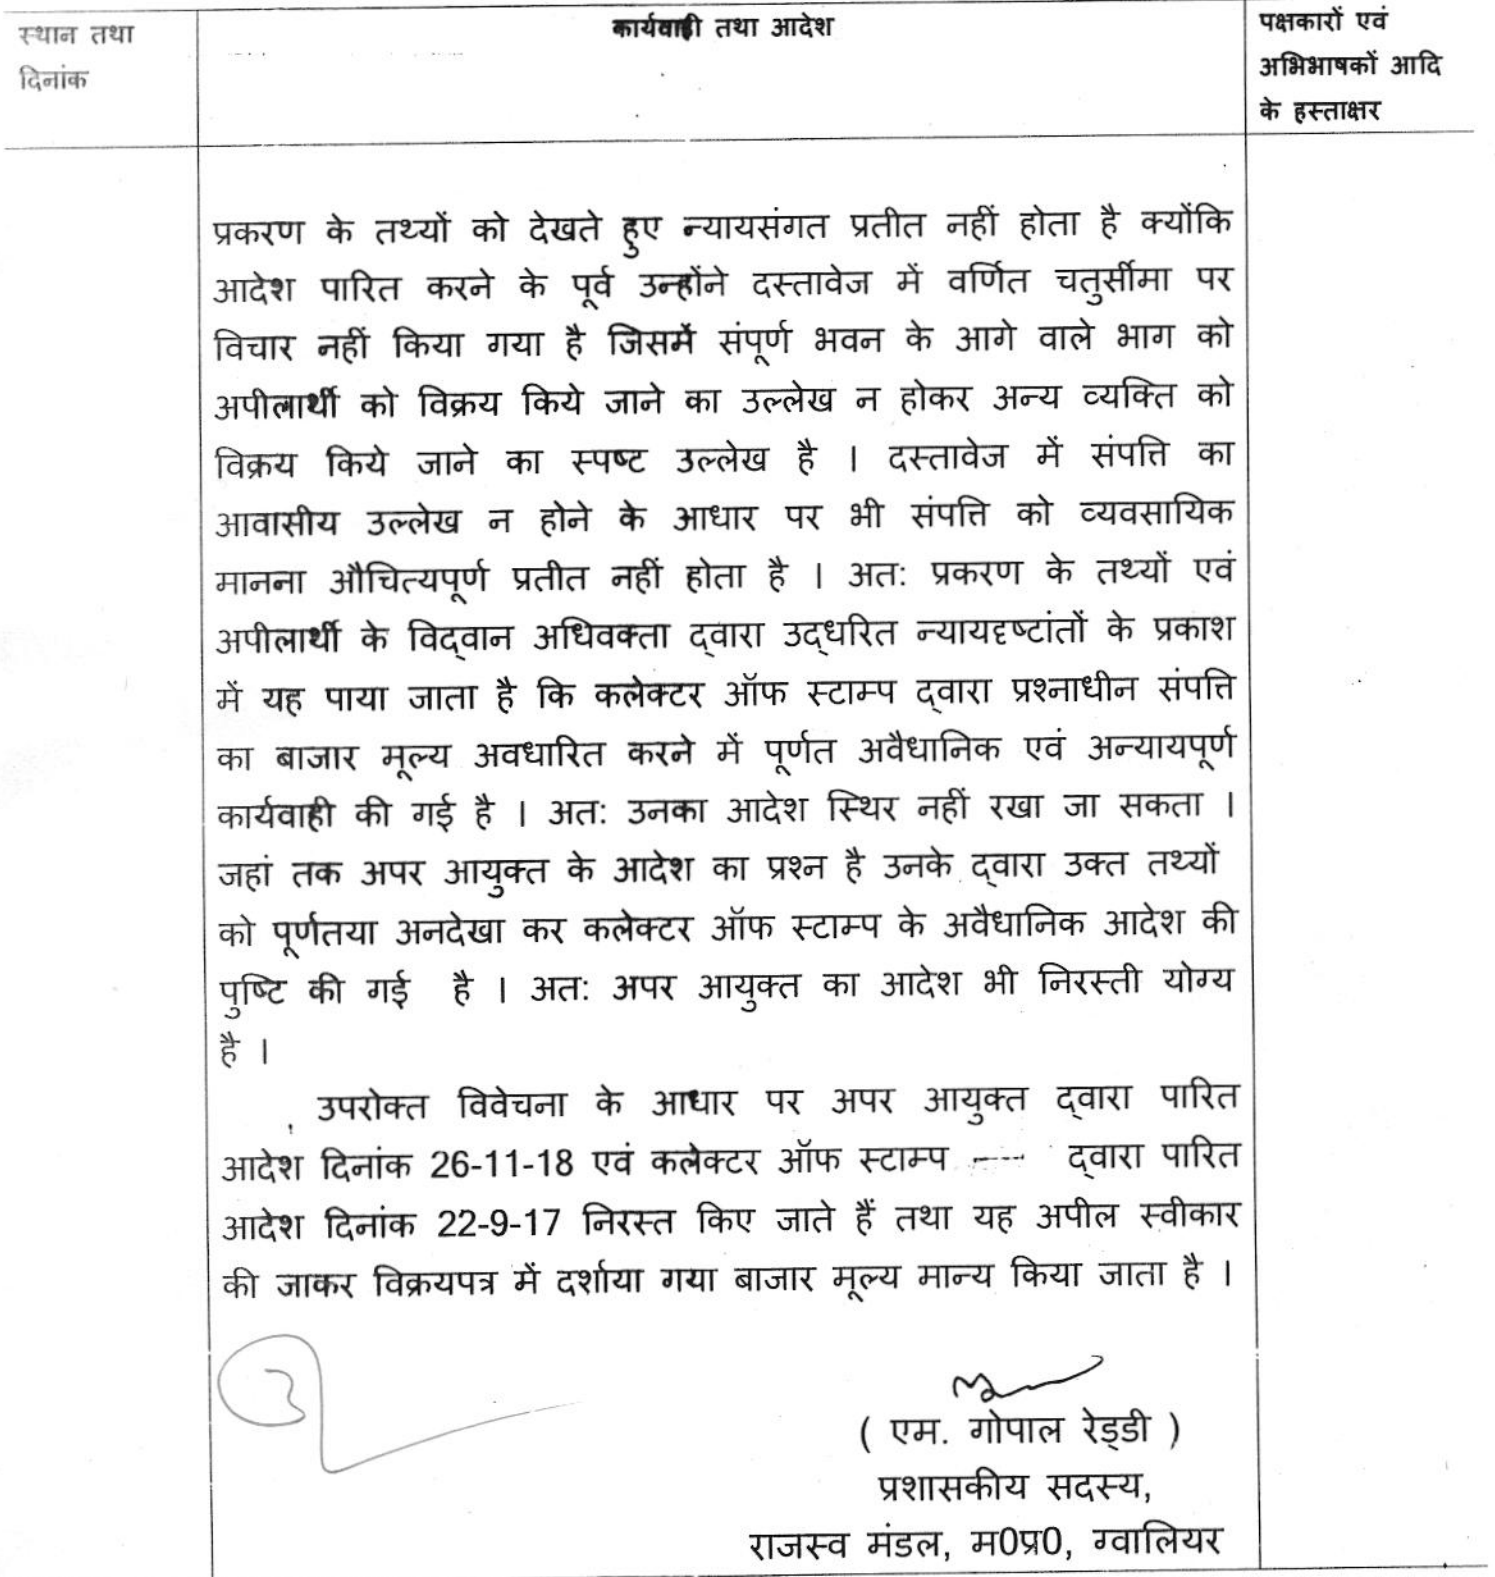 स्थान तथा
दिनांक
कार्यवाही तथा आदेश
पक्षकारों एवं
अभिभाषकों आदि
के हस्ताक्षर
प्रकरण के तथ्यों को देखते हुए न्यायसंगत प्रतीत नहीं होता है क्योंकि
आदेश पारित करने के पूर्व उन्होंने दस्तावेज में वर्णित चतुर्सीमा पर
विचार नहीं किया गया है जिसमें संपूर्ण भवन के आगे वाले भाग को
अपीलार्थी को विक्रय किये जाने का उल्लेख न होकर अन्य व्यक्ति को
विक्रय किये जाने का स्पष्ट उल्लेख है । दस्तावेज में संपत्ति का
आवासीय उल्लेख न होने के आधार पर भी संपत्ति को व्यवसायिक
मानना औचित्यपूर्ण प्रतीत नहीं होता है । अत: प्रकरण के तथ्यों एवं
अपीलार्थी के विद्वान अधिवक्ता द्वारा उद्धरित न्यायदृष्टांतों के प्रकाश
में यह पाया जाता है कि कलेक्टर ऑफ स्टाम्प द्वारा प्रश्नाधीन संपत्ति
का बाजार मूल्य अवधारित करने में पूर्णत अवैधानिक एवं अन्यायपूर्ण
कार्यवाही की गई है । अत: उनका आदेश स्थिर नहीं रखा जा सकता ।
जहां तक अपर आयुक्त के आदेश का प्रश्न है उनके द्वारा उक्त तथ्यों
को पूर्णतया अनदेखा कर कलेक्टर ऑफ स्टाम्प के अवैधानिक आदेश की
पुष्टि की गई है । अत: अपर आयुक्त का आदेश भी निरस्ती योग्य
है ।
उपरोक्त विवेचना के आधार पर अपर आयुक्त द्वारा पारित
आदेश दिनांक 26-11-18 एवं कलेक्टर ऑफ स्टाम्प ---- द्वारा पारित
आदेश दिनांक 22-9-17 निरस्त किए जाते हैं तथा यह अपील स्वीकार
की जाकर विक्रयपत्र में दर्शाया गया बाजार मूल्य मान्य किया जाता है ।
( एम. गोपाल रेड्डी )
प्रशासकीय सदस्य,
राजस्व मंडल, म0प्र0, ग्वालियर